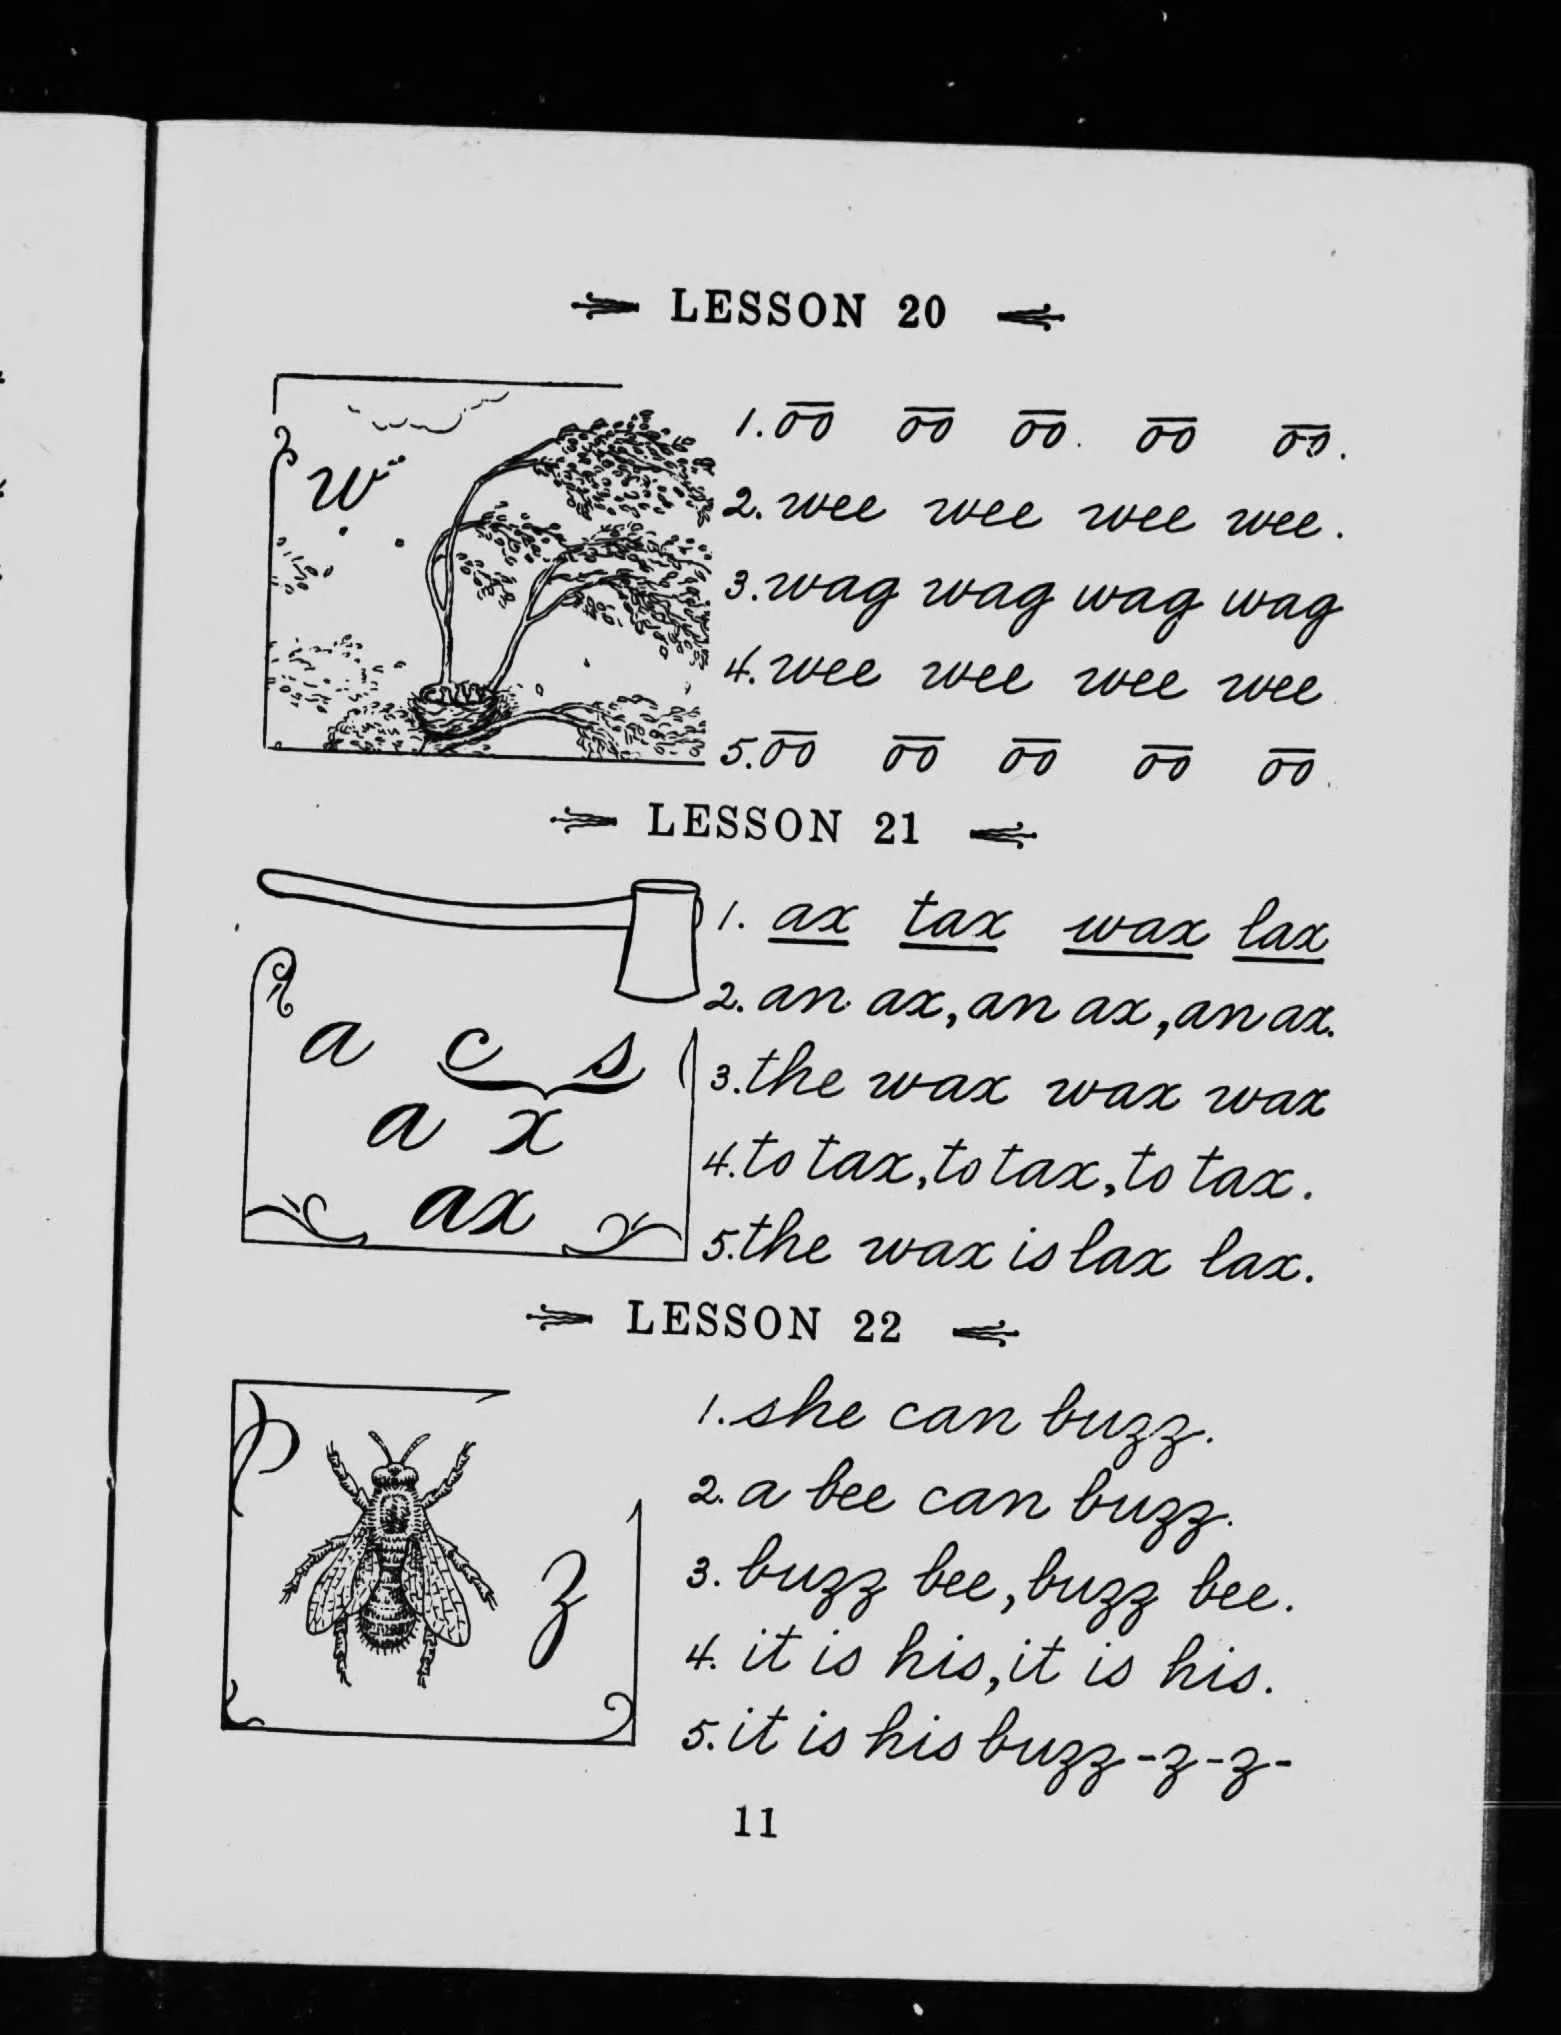 LESSON 20
w
1. o͞o o͞o o͞o. o͞o o͞o.
2. wee wee wee wee.
3. wag wag wag wag
4. wee wee wee wee
5. o͞o o͞o o͞o o͞o o͞o.
LESSON 21
1. ax tax wax lax
2. an ax, an ax, an ax.
a c s
3. the wax wax wax
a x
4. to tax, to tax, to tax.
ax
5. the wax is lax lax.
LESSON 22
1. she can buzz.
2. a bee can buzz.
z
3. buzz bee, buzz bee.
4. it is his, it is his.
5. it is his buzz-z-z-
11